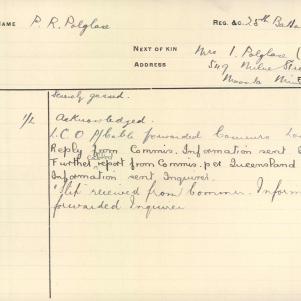 NAME P. R. Polglase REG. &C. 25th Batta
NEXT OF KIN Mrs I. Polglase (
ADDRESS 549 Milne Stre
Moonta Min
gassed.
Acknowledged.
Cable forwarded
Reply from Commis. Information sent
Further report from Commis. per Queensland
Information sent, Inquirer.
"slip" received from Commr. Inform
forwarded Inquirer